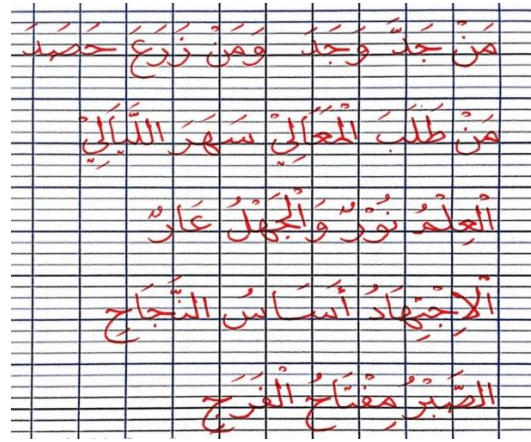 مَنْ جَدَّ وَجَدَ وَمَنْ زَرَعَ حَصَدَ
مَنْ طَلَبَ الْمَعَالِيْ سَهَرَ اللَّيَالِيْ
الْعِلْمُ نُوْرٌ وَالْجَهْلُ عَارٌ
الْاِجْتِهَادُ أَسَاسُ النَّجَاحِ
الصَّبْرُ مِفْتَاحُ الْفَرَجِ